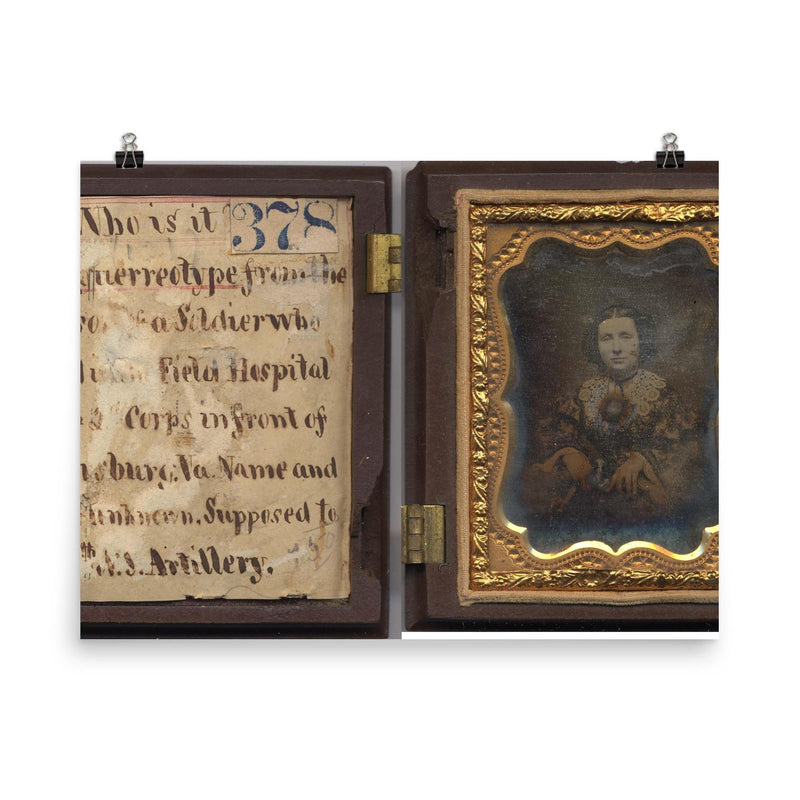 Who is it 378
guerreotype from the
a Soldier who
Field Hospital
Corps in front of
sburg, Va. Name and
unknown. Supposed to
Artillery.